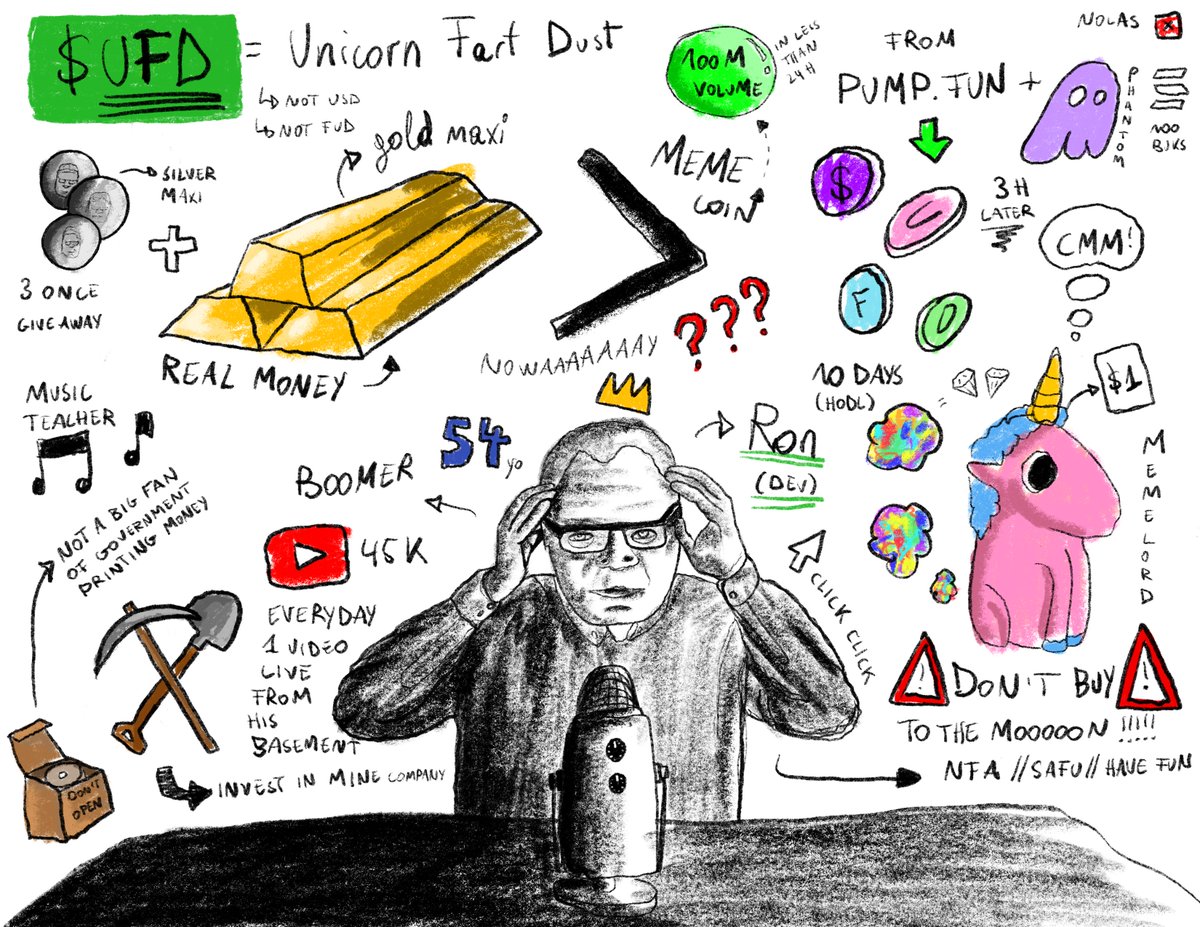 $UFD = Unicorn Fart Dust
NOT USD
NOT FUD
SILVER
MAXI
3 ONCE
GIVEAWAY
gold maxi
REAL MONEY
MEME
COIN
100M
VOLUME
IN LESS
THAN
24H
FROM
PUMP.FUN +
PHANTOM
NOLAS
100
BUKS
$
U
F
D
3H
LATER
CMM!
$1
NOWAAAAAAAY
???
MUSIC
TEACHER
NOT A BIG FAN
OF GOVERNMENT
PRINTING MONEY
BOOMER
54 yo
45K
EVERYDAY
1 VIDEO
LIVE
FROM
HIS
BASEMENT
DON'T
OPEN
INVEST IN MINE COMPANY
Ron
(DEV)
CLICK CLICK
10 DAYS
(HODL)
=
MEMELORD
! DON'T BUY !
TO THE MOOOOON !!!!!
NFA // SAFU // HAVE FUN